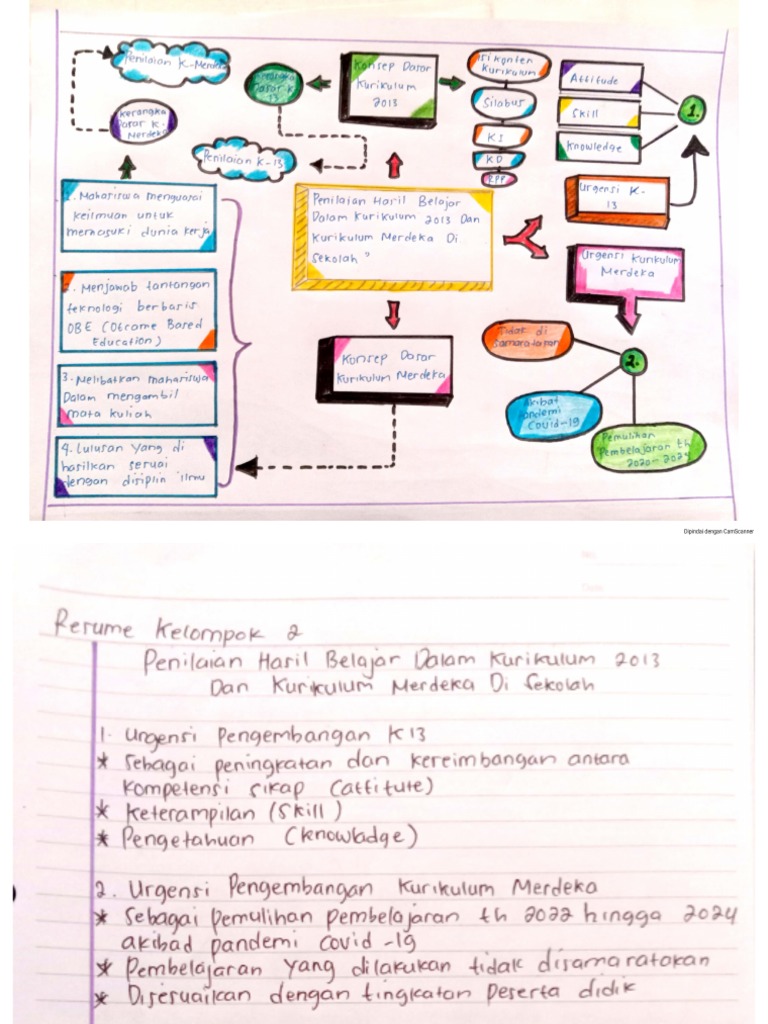 Penilaian K-Merdeka
Kerangka
Dasar K-
Merdeka
Kerangka
Dasar K
13
Konsep Dasar
Kurikulum
2013
Isi Konten
Kurikulum
Silabus
KI
KD
RPP
Attitude
Skill
Knowledge
1.
Penilaian K-13
1. Mahasiswa menguasai
keilmuan untuk
memasuki dunia kerja
2. Menjawab tantangan
teknologi berbasis
OBE (Otcome Based
Education)
3. Melibatkan mahasiswa
Dalam mengambil
mata kuliah
4. Lulusan yang di
hasilkan sesuai
dengan disiplin ilmu
Penilaian Hasil Belajar
Dalam Kurikulum 2013 Dan
Kurikulum Merdeka Di
Sekolah"
Urgensi K-
13
Urgensi Kurikulum
Merdeka
Konsep Dasar
Kurikulum Merdeka
Tidak di
samaratakan
2.
Akibat
pandemi
Covid-19
Pemulihan
Pembelajaran th
2020-2024
Dipindai dengan CamScanner
Resume Kelompok 2
Penilaian Hasil Belajar Dalam Kurikulum 2013
Dan Kurikulum Merdeka Di Sekolah
1. Urgensi Pengembangan K13
* Sebagai peningkatan dan keseimbangan antara
kompetensi sikap (attitute)
* Keterampilan (Skill)
* Pengetahuan (knowladge)
2. Urgensi Pengembangan Kurikulum Merdeka
* Sebagai pemulihan pembelajaran th 2022 hingga 2024
akibad pandemi covid-19
* Pembelajaran yang dilakukan tidak disamaratakan
* Disesuaikan dengan tingkatan peserta didik